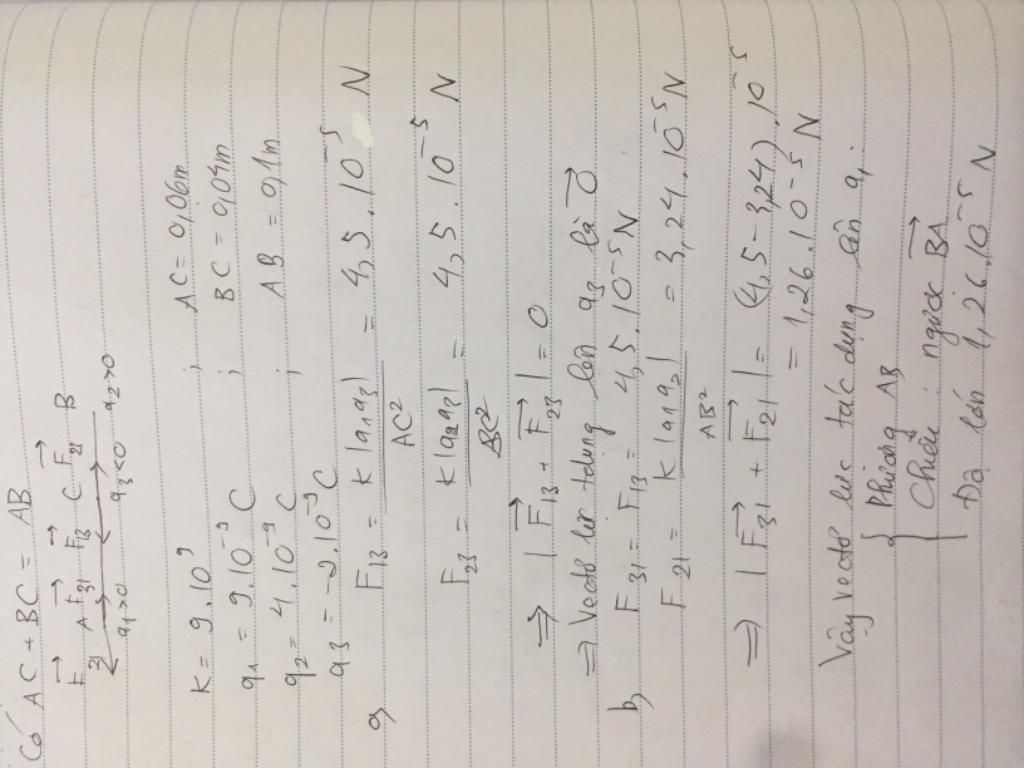 Có AC + BC = AB
F₂₁ A F₃₁ F₁₃ C F₂₃ B
q₁>0 q₃<0 q₂>0
K = 9.10⁹ ; AC = 0,06m
q₁ = 9.10⁻⁹ C ; BC = 0,04m
q₂ = 4.10⁻⁹ C ; AB = 0,1m
q₃ = -2.10⁻⁹ C
a, F₁₃ = K|q₁q₃| / AC² = 4,5.10⁻⁵ N
F₂₃ = K|q₂q₃| / BC² = 4,5.10⁻⁵ N
⇒ |F₁₃→ + F₂₃→| = 0
⇒ Vectơ lực tdụng lên q₃ là 0→
b, F₃₁ = F₁₃ = 4,5.10⁻⁵ N
F₂₁ = K|q₁q₂| / AB² = 3,24.10⁻⁵ N
⇒ |F₃₁→ + F₂₁→| = (4,5 - 3,24).10⁻⁵
= 1,26.10⁻⁵ N
Vậy vectơ lực tác dụng lên q₁:
Phương AB
Chiều: ngược BA→
Độ lớn 1,26.10⁻⁵ N